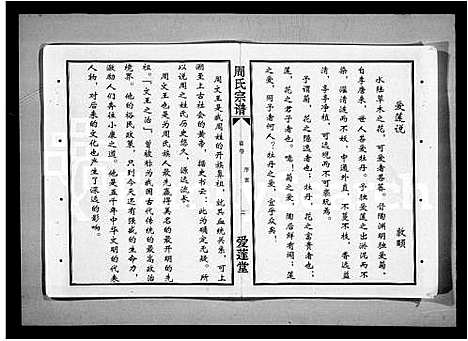 爱莲说
敦颐
水陆草木之花，可爱者甚蕃。晋陶渊明独爱菊。
自李唐来，世人甚爱牡丹。予独爱莲之出淤泥而不
染，濯清涟而不妖，中通外直，不蔓不枝，香远益
清，亭亭净植，可远观而不可亵玩焉。
予谓菊，花之隐逸者也；牡丹，花之富贵者也；
莲，花之君子者也。噫！菊之爱，陶后鲜有闻；莲
之爱，同予者何人？牡丹之爱，宜乎众矣。
周氏宗谱
首卷
序言
二
爱莲堂
周文王是我周姓的开族鼻祖，就其血统关系，可上
溯至上古社会的黄帝，据史书云：此为确定无疑。所
以说周之姓氏历史悠久，源远流长。
周文王也是为周氏族人最先赢得美名的最开明的先
祖。「文王之治」，曾被标为我国古代传统的最高政治
境界。他的裕民政策，只到今天还有强盛的生命力，
激励人们奔往小康之道。他是五千年中华文明的代表
人物，对后来的文化也产生了深远的影响。